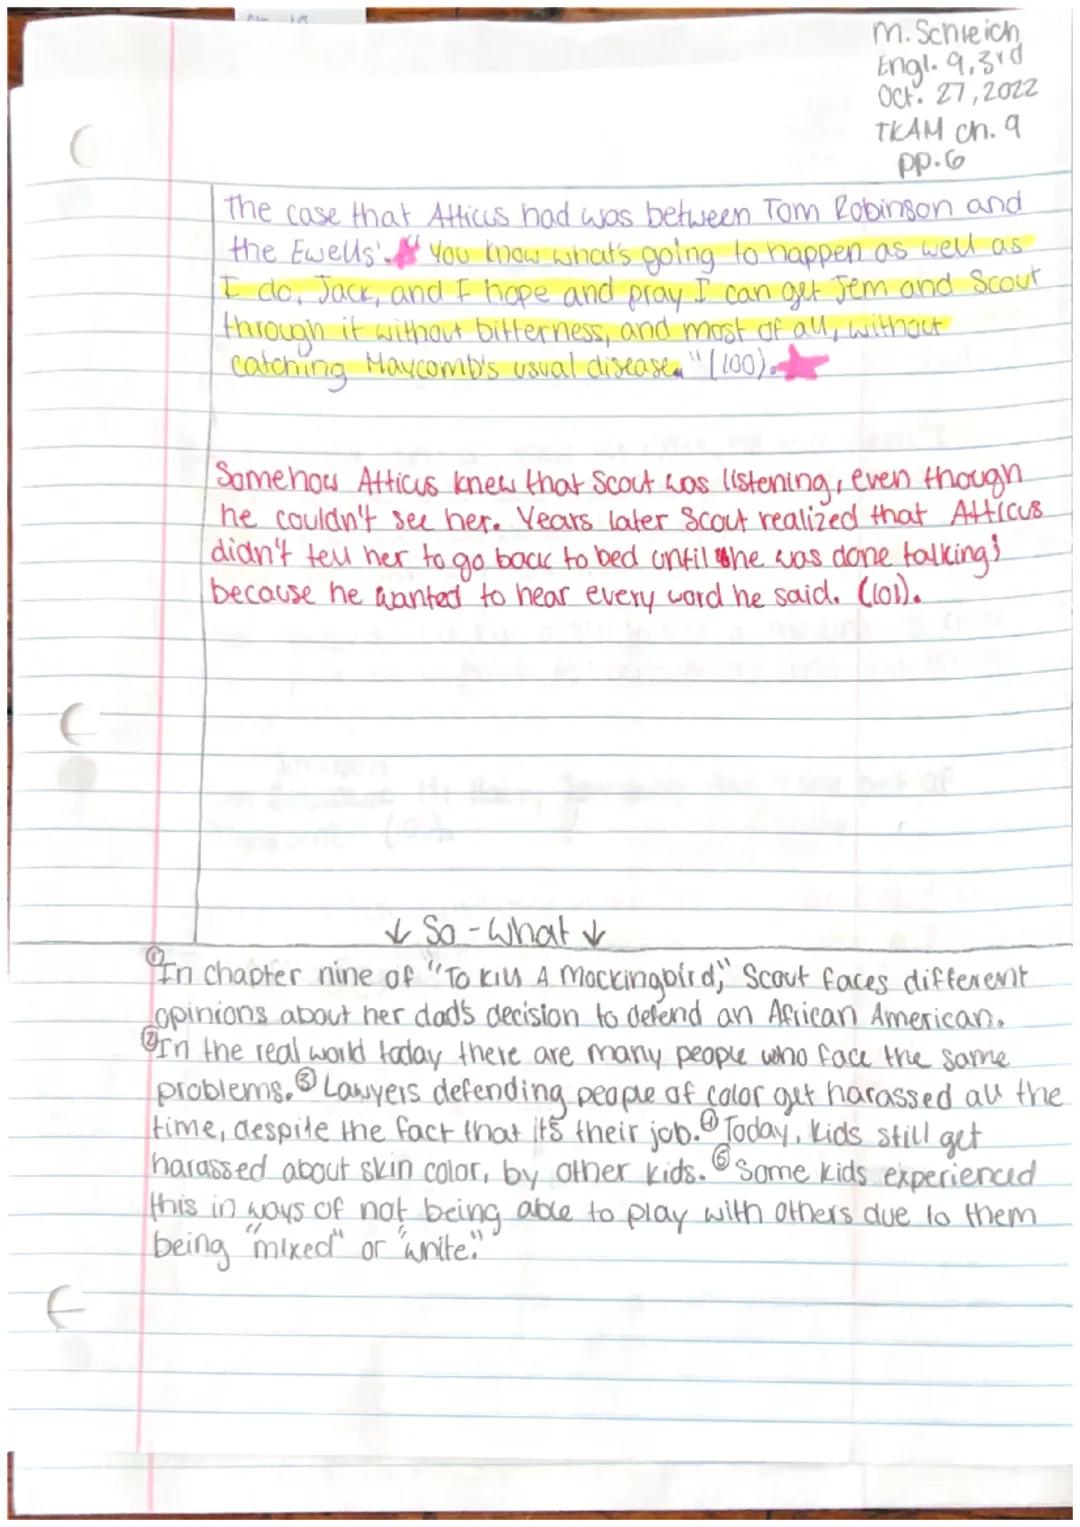 M. Schleich
Engl. 9, 3rd
Oct. 27, 2022
TKAM ch. 9
pp. 6
The case that Atticus had was between Tom Robinson and
the Ewells'. "You know what's going to happen as well as
I do, Jack, and I hope and pray I can get Jem and Scout
through it without bitterness, and most of all, without
catching Maycomb's usual disease." (100).
Somehow Atticus knew that Scout was listening, even though
he couldn't see her. Years later Scout realized that Atticus
didn't tell her to go back to bed until he was done talking;
because he wanted to hear every word he said. (101).
↓ So-What ↓
①In chapter nine of "To Kill A Mockingbird," Scout faces different
opinions about her dad's decision to defend an African American.
②In the real world today there are many people who face the same
problems. ③Lawyers defending people of color get harassed all the
time, despite the fact that it's their job. ④Today, kids still get
harassed about skin color, by other kids. ⑤Some kids experienced
this in ways of not being able to play with others due to them
being "mixed" or "white."